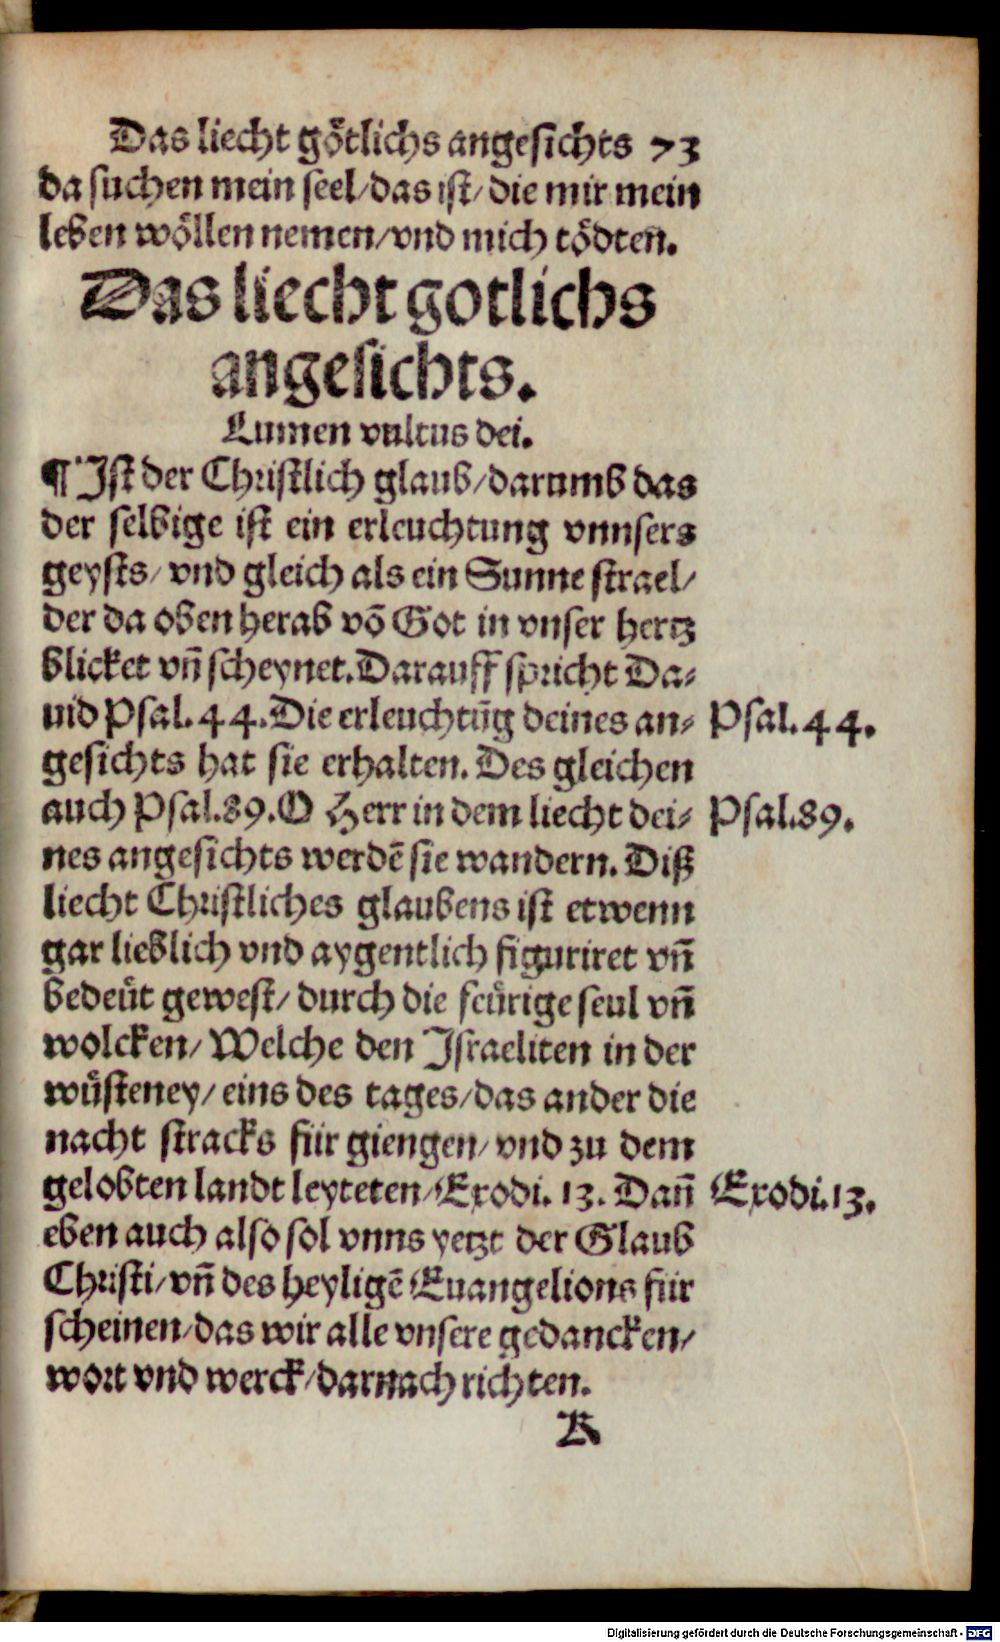 Das liecht götlichs angesichts 73
da suchen mein seel/das ist/die mir mein
leben wöllen nemen/vnd mich tödten.
Das liecht gotlichs
angesichts.
Lumen vultus dei.
¶ Ist der Christlich glaub/darumb das
der selbige ist ein erleuchtung vnnsers
geysts/vnd gleich als ein Sunne strael/
der da oben herab võ Got in vnser hertz
blicket vñ scheynet. Darauff spricht Da-
uid Psal. 44. Die erleuchtũg deines an- Psal. 44.
gesichts hat sie erhalten. Des gleichen
auch Psal. 89. O Herr in dem liecht dei- Psal. 89.
nes angesichts werdẽ sie wandern. Diß
liecht Christliches glaubens ist etwenn
gar lieblich vnd aygentlich figuriret vñ
bedeüt gewest/durch die feürige seul vñ
wolcken/Welche den Israeliten in der
wüsteney/eins des tages/das ander die
nacht stracks für giengen/vnd zu dem
gelobten landt leyteten/Exodi. 13. Dañ Exodi. 13.
eben auch also sol vnns yetzt der Glaub
Christi/vñ des heyligẽ Euangelions für
scheinen/das wir alle vnsere gedancken/
wort vnd werck/darnach richten.
K
Digitalisierung gefördert durch die Deutsche Forschungsgemeinschaft - DFG